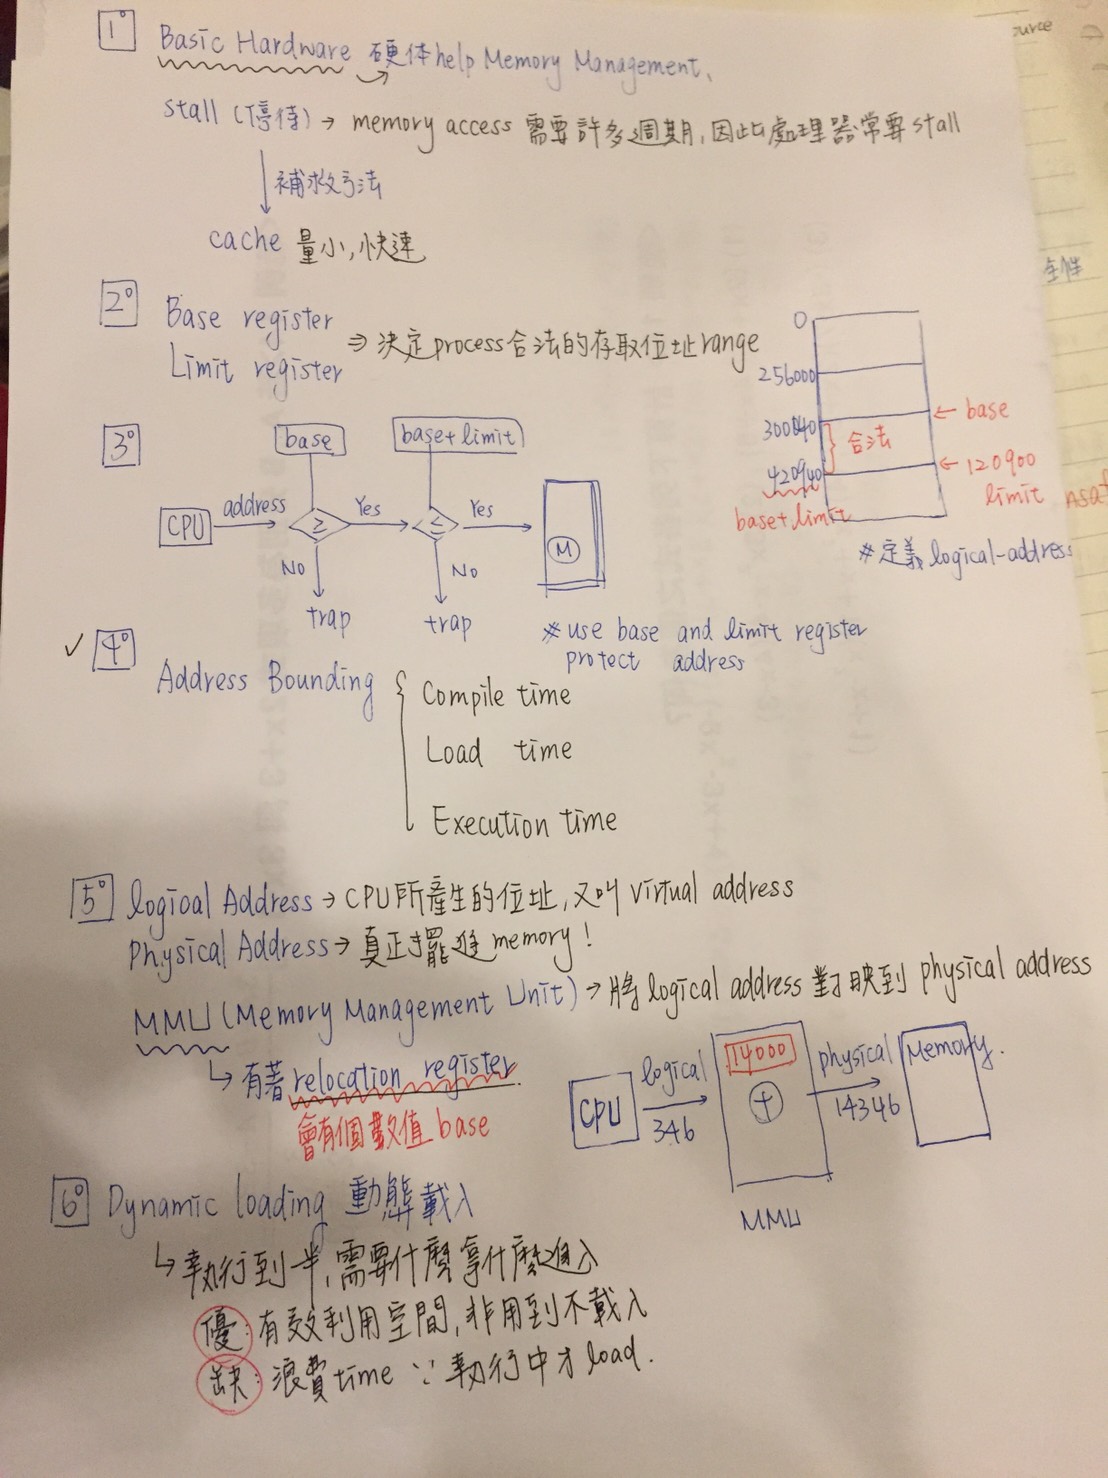 1° Basic Hardware 硬体help Memory Management、
stall (停待) → memory access 需要許多週期,因此處理器常要stall
補救方法
cache 量小,快速
2° Base register
Limit register
⇒ 決定process合法的存取位址range
0
256000
300040
420940
base+limit
合法
← base
← 120900
limit
#定義logical-address
3° base
base+limit
CPU address ≥ Yes ≤ Yes M
NO NO
trap trap
#use base and limit register
protect address
✓ 4° Address Bounding { Compile time
Load time
Execution time
5° logical Address → CPU所產生的位址,又叫 virtual address
Physical Address → 真正擺進memory!
MMU (Memory Management Unit) → 將logical address 對映到 physical address
↳ 有著relocation register.
會有個數值 base
CPU logical 346 14000 + physical 14346 Memory.
MMU
6° Dynamic loading 動態載入
↳ 執行到一半,需要什麼拿什麼進入
優:有效利用空間,非用到不載入
缺:浪費time ∵ 執行中才load.
ource
全性